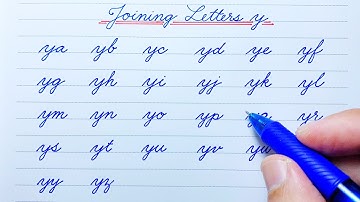 Joining Letters y
ya yb yc yd ye yf
yg yh yi yj yk yl
ym yn yo yp yq yr
ys yt yu yv yw
yy yz